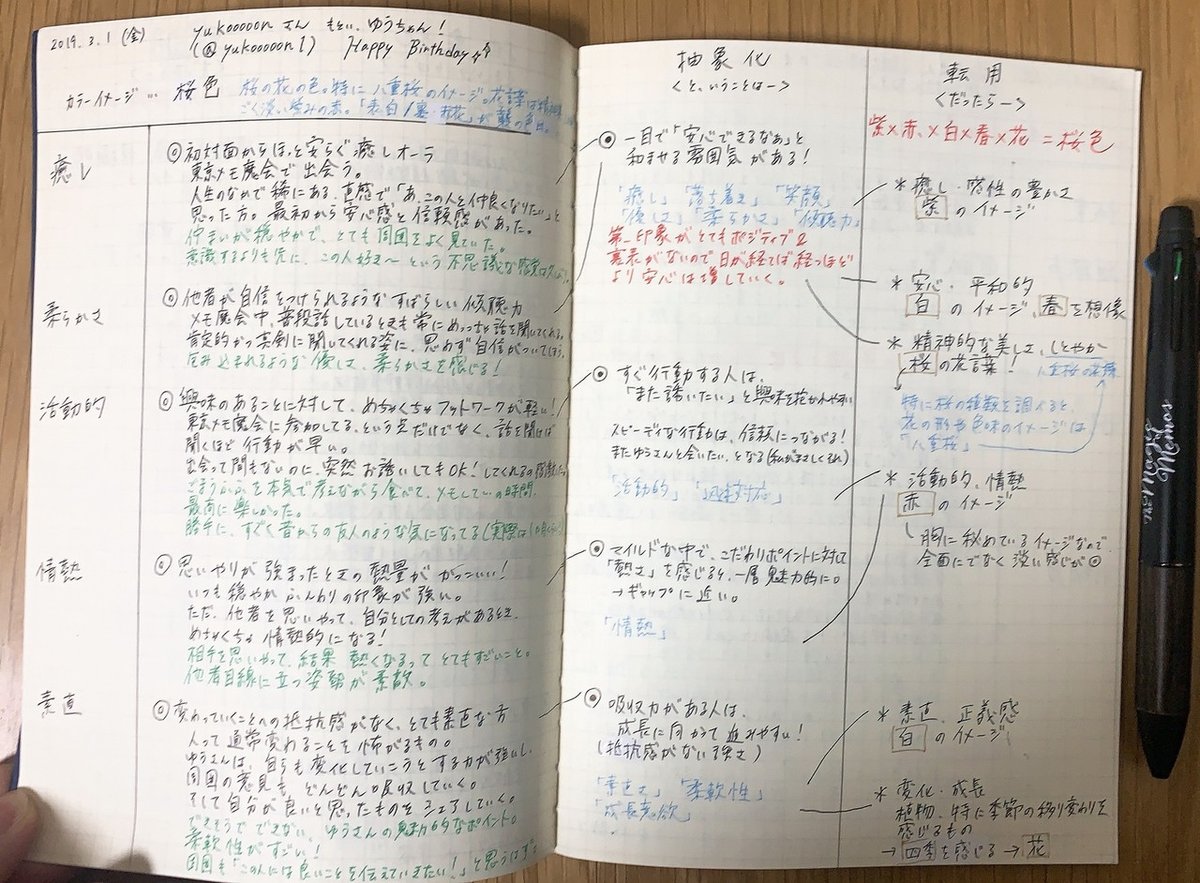 2019.3.1 (金)
yukooooonさん もとい、ゆうちゃん!
(@yukooooon1) Happy Birthday
カラーイメージ… 桜色
桜の花の色。特に八重桜のイメージ。花言葉は
ごく淡い紫みの赤。「表白/裏
癒し
◎初対面からほっと安らぐ癒しオーラ
東京メモ魔会で出会う。
人生のなかで稀にある、直感で「あ、この人と仲良くなりたい」と
思った方。最初から安心感と信頼感があった。
佇まいが穏やかで、とても周囲をよく見ていた。
意識するよりも先に、この人好き〜という不思議な感覚
柔らかさ
◎他者が自信をつけられるようなすばらしい傾聴力
メモ魔会中、普段話しているときも常にめっちゃ話を聞いてくれる。
肯定的かつ真剣に聞いてくれる姿に、思わず自信がついてしまう。
包み込まれるような優しさ、柔らかさを感じる!
活動的
◎興味のあることに対して、めちゃくちゃフットワークが軽い!
東京メモ魔会に参加してる、という点だけでなく、話を聞けば
聞くほど行動が早い。
出会って間もないのに、突然お誘いしてもOK!してくれるの感動
を本気で考えながら食べて、メモしていの時間、
最高に楽しかった。
勝手に、すごく昔からの友人のような気になってる(実際は
情熱
◎思いやりが強まったときの熱量がかっこいい!
いつも穏やか ふんわりの印象が強い。
ただ、他者を思いやって、自分としての考えがあるとき、
めちゃくちゃ情熱的になる!
相手を思いやって、結果 熱くなるって、とてもすごいこと。
他者目線に立つ姿勢が素敵。
素直
◎変わっていくことへの抵抗感がなく、とても素直な方
人って通常変わることを怖がるもの。
ゆうさんは、自らも変化していこうとする力が強いし、
周囲の意見も、どんどん吸収していく。
そして自分が良いと思ったものをシェアしていく。
できそうでできない、ゆうさんの魅力的なポイント。
柔軟性がすごい!
周囲も「この人には良いことを伝えていきたい!」と思うはず
抽象化
<と、いうことは→>
◉一目で「安心できるなぁ」と
和ませる雰囲気がある!
「癒し」「落ち着き」「笑顔」
「優しさ」「柔らかさ」「傾聴力」
第一印象がとてもポジティブ
裏表がないので日が経てば経つほど
より安心は増していく。
◉すぐ行動する人は、
「また誘いたい」と興味を
スピーディな行動は、信頼につながる!
またゆうさんと会いたい、となる(私が
「活動的」「迅速対応」
◉マイルドな中で、こだわりポイントに対して
「熱さ」を感じると、一層魅力的に。
→ギャップに近い。
「情熱」
◉吸収力がある人は、
成長に向かって進みやすい!
(抵抗感がない強さ)
「素直さ」「柔軟性」
「成長意欲」
転用
<だったら→>
紫×赤×白×春×花=桜色
*癒し・感性の豊かさ
紫のイメージ
*安心・平和的
白のイメージ、春を想像
*精神的な美しさ、しとやか
桜の花言葉!
八重桜の
特に桜の種類を調べると、
花の形や色味のイメージは
「八重桜」
*活動的、情熱
赤のイメージ
胸に秘めているイメージなので
全面にでなく淡い感じが◎
*素直、正義感
白のイメージ
*変化・成長
植物、特に季節の移り変わりを
感じるもの
→四季を感じる→花